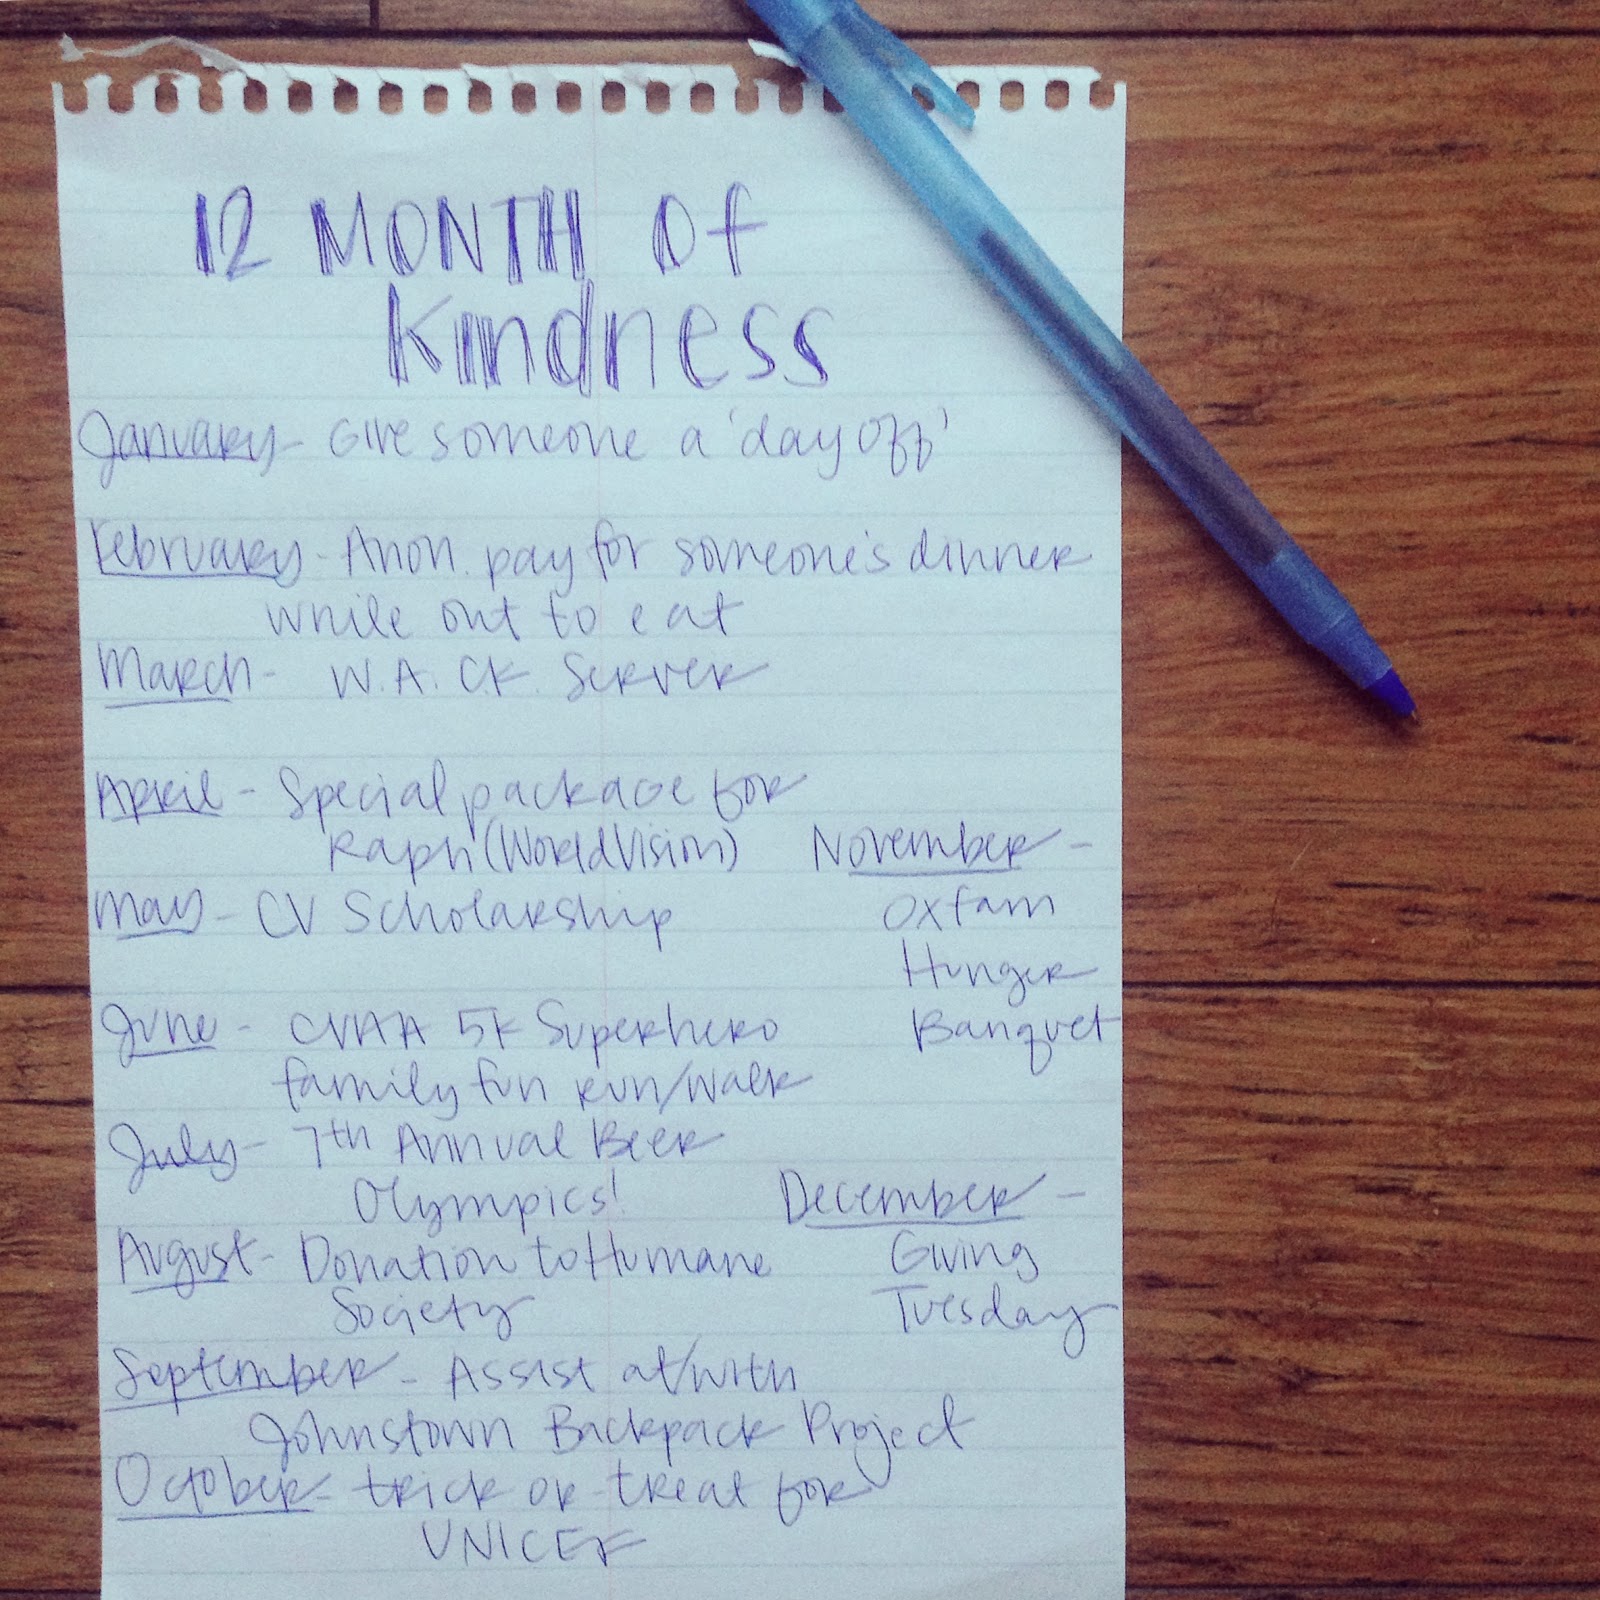 12 MONTH OF
Kindness
January- Give someone a 'day off'
February- Anon. pay for someone's dinner
while out to eat
March- W.A.C.K. Server
April- Special package for
Raph (World Vision)
May- CV Scholarship
June- CVAA 5K Superhero
family fun run/walk
July- 7th Annual Beer
Olympics!
August- Donation to Humane
Society
September- Assist at/with
Johnstown Backpack Project
October- trick or treat for
UNICEF
November-
Oxfam
Hunger
Banquet
December-
Giving
Tuesday